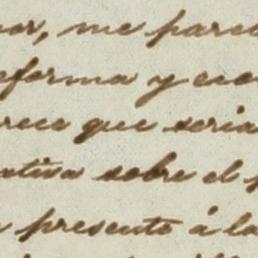 or, me parec
eforma y eco
rece que seria
ativa sobre el p
presente á la